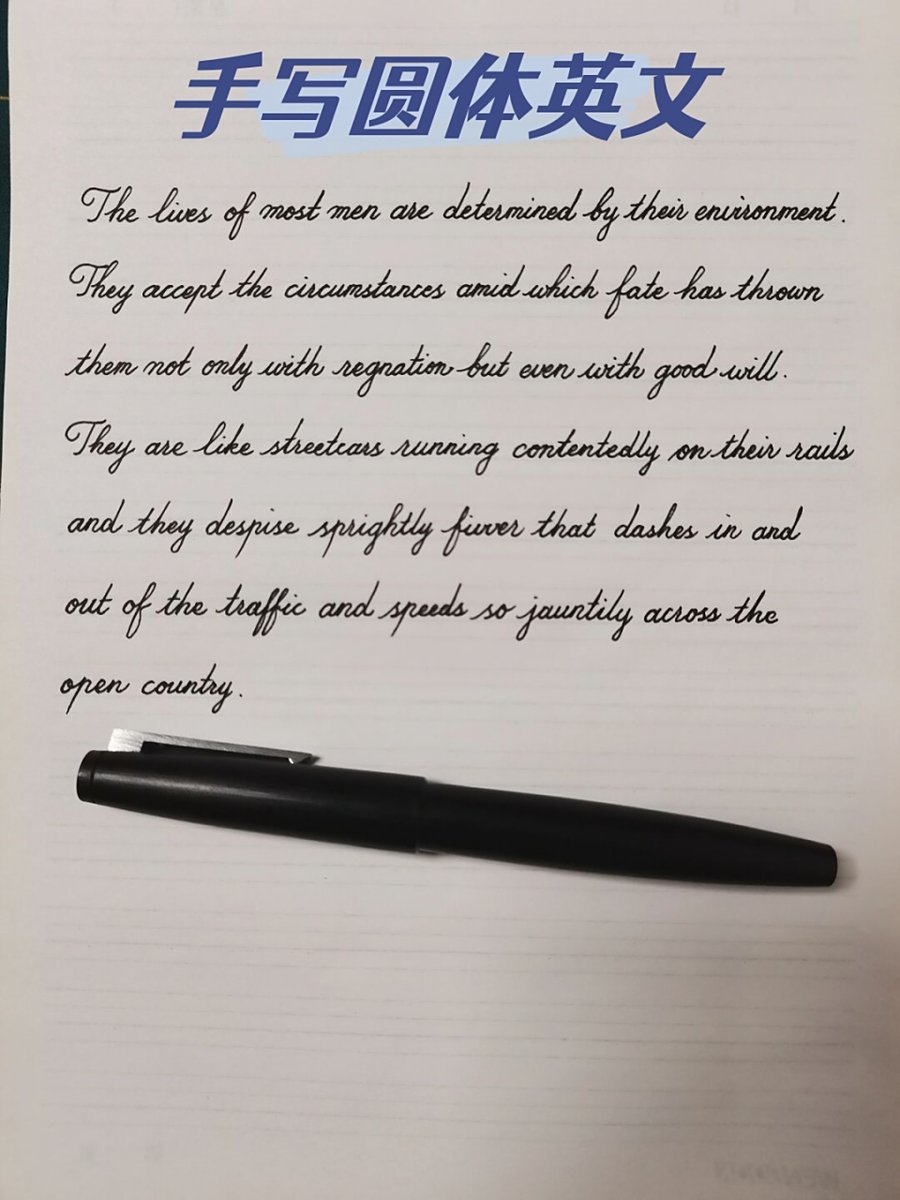 手写圆体英文
The lives of most men are determined by their environment.
They accept the circumstances amid which fate has thrown
them not only with regnation but even with good will.
They are like streetcars running contentedly on their rails
and they despise sprightly fiwer that dashes in and
out of the traffic and speeds so jauntily across the
open country.